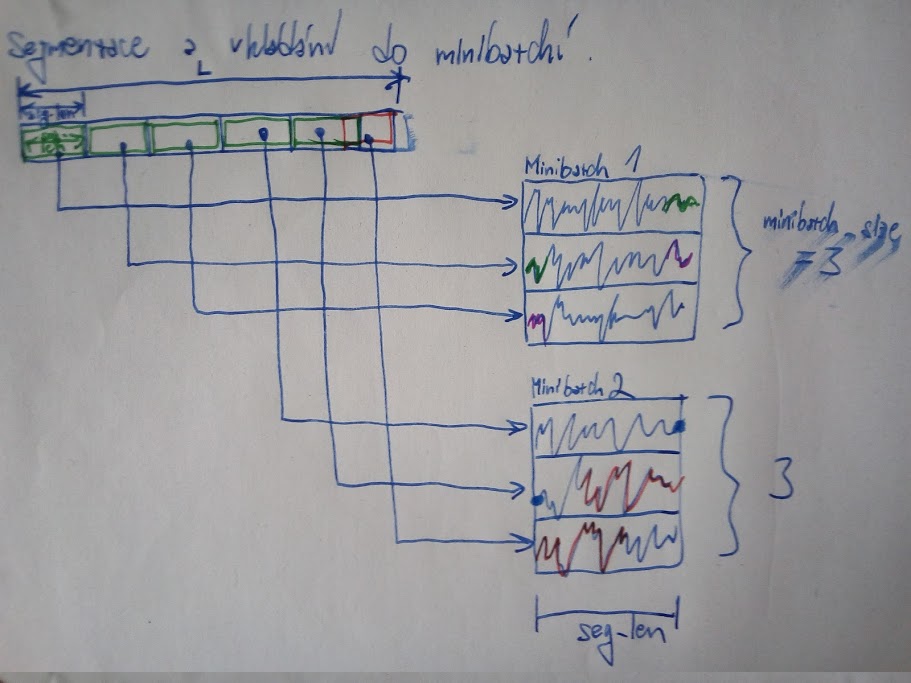 Segmentace a vkládání do minibatchí.
L
seg-len
Minibatch 1
minibatch_size
= 3
Minibatch 2
3
seg-len